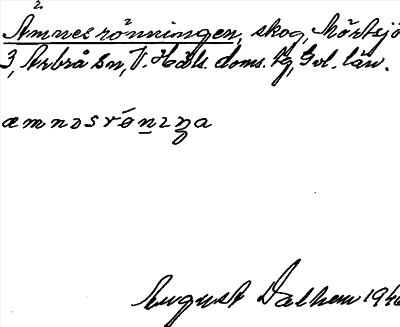 Ämnesrönningen, skog, Mörtsjö
3, Arbrå sn, V. Häls. doms. tg, Gvl. län.
æmnɔsrǿnɪŋa
August Dalhem 1940